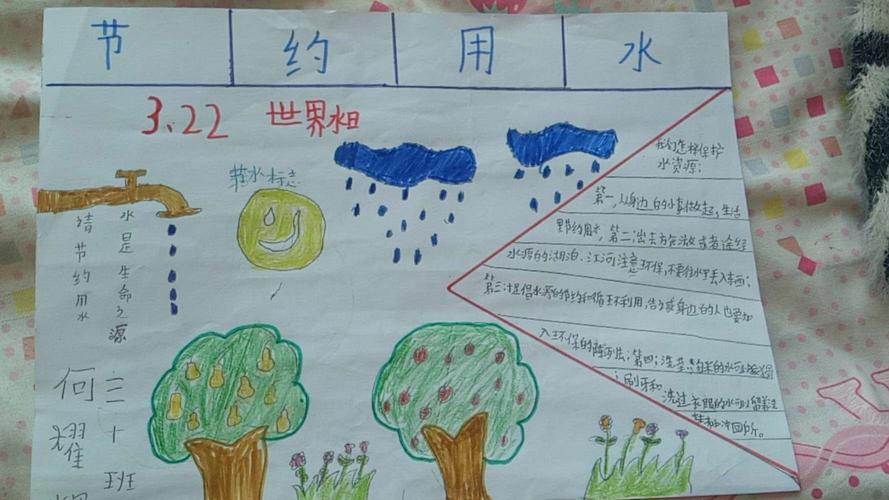 节约用水
3.22 世界水日
节水标志
水是生命之源
请节约用水
三十班
何耀
我们怎样保护
水资源:
第一,从身边的小事做起,生活
节约用水,第二出去旅游或者途经
水源的湖泊、江河注意环保,不要往水里丢入东西;
第三 提倡水源的节约和循环利用,告诉身边的人也要加
入环保的
洗菜 的水可以
刷牙和
洗过衣服的水可以留着
冲厕所。